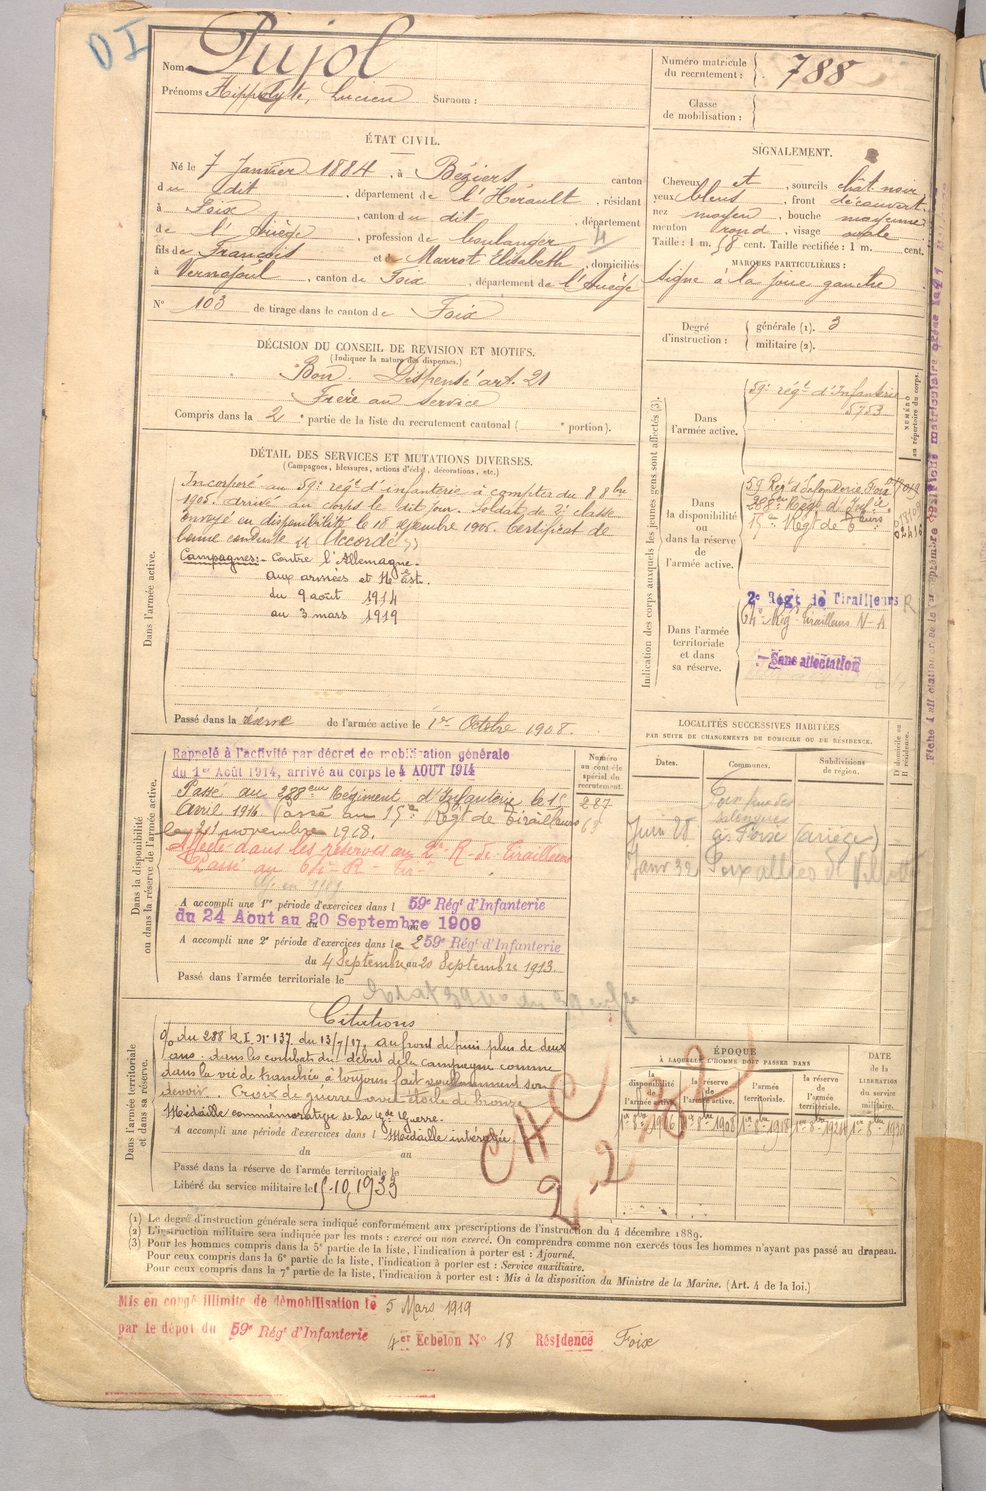 D I
Nom Pujol
Prénoms Hippolyte, Lucien Surnom :
Numéro matricule
du recrutement : 788
Classe
de mobilisation :
ÉTAT CIVIL.
Né le 7 Janvier 1884, à Béziers canton
du dit, département de l'Hérault, résidant
à Foix, canton du dit, département
de l'Ariège, profession de boulanger
fils de François et de Marrot Elisabeth, domiciliés
à Vernajoul, canton de Foix, département de l'Ariège
N° 103 de tirage dans le canton de Foix
SIGNALEMENT.
Cheveux et, sourcils chât noir
yeux bleus, front découvert
nez moyen, bouche moyenne
menton rond, visage ovale
Taille : 1 m. 58 cent. Taille rectifiée : 1 m. cent.
MARQUES PARTICULIÈRES :
signe à la joue gauche
Degré
d'instruction : générale (1). 3
militaire (2).
DÉCISION DU CONSEIL DE REVISION ET MOTIFS.
(Indiquer la nature des dispenses.)
Bon. Dispensé art. 21
Frère au service
Compris dans la 2e partie de la liste du recrutement cantonal ( e portion).
DÉTAIL DES SERVICES ET MUTATIONS DIVERSES.
(Campagnes, blessures, actions d'éclat, décorations, etc.)
Dans l'armée active.
Incorporé au 59e régt d'infanterie à compter du 8 8bre
1905. arrivé au corps le dit jour. Soldat de 2e classe
envoyé en disponibilité le 18 septembre 1906. Certificat de
bonne conduite "Accordé"
Campagnes:- Contre l'Allemagne.
aux armées et
du 9 août 1914
au 3 mars 1919
Passé dans la réserve de l'armée active le 1er Octobre 1908.
Indication des corps auxquels les jeunes gens sont affectés (3).
NUMÉRO
au répertoire du corps.
Dans
l'armée active.
59e régt d'Infanterie
5953
Dans
la disponibilité
ou
dans la réserve
de
l'armée active.
59 Régt d'Infanterie Foix
288eme Régt d'Infie
15e Régt de Teurs
Dans l'armée
territoriale
et dans
sa réserve.
2e Régt de Tirailleurs R
64e Régt Tirailleurs N-A
Sans affectation
LOCALITÉS SUCCESSIVES HABITÉES
PAR SUITE DE CHANGEMENTS DE DOMICILE OU DE RÉSIDENCE.
Dates. Communes. Subdivisions
de région. D domicile ou
R résidence.
Foix rue des
Juin 28 Foix (Ariège)
Janv 32 Foix allées de Villotte
Dans la disponibilité
ou dans la réserve de l'armée active.
Rappelé à l'activité par décret de mobilisation générale
du 1er Août 1914, arrivé au corps le 4 AOUT 1914
Passé au 288eme Régiment d'Infanterie le 15
Avril 1916. Passé au 15e Régt de Tirailleurs
le 21 novembre 1918.
Affecté dans les réserves au 2e R. de Tirailleurs
Passé au 64e R. Tir.
Numéro
au contrôle
spécial du
recrutement.
287
A accompli une 1re période d'exercices dans l 59e Régt d'Infanterie
du 24 Aout au 20 Septembre 1909
A accompli une 2e période d'exercices dans le 259e Régt d'Infanterie
du 4 Septembre au 20 Septembre 1913.
Passé dans l'armée territoriale le
Dans l'armée territoriale
et dans sa réserve.
Citations
O/ du 288 R.I. N° 137 du 13/7/17, au front depuis plus de deux
ans. dans les combats du début de la campagne comme
dans la vie de tranchée a toujours fait vaillamment son
devoir. Croix de guerre avec étoile de bronze
Médaille commémorative de la Gde Guerre.
A accompli une période d'exercices dans l Médaille interalliée.
du au
Passé dans la réserve de l'armée territoriale le
Libéré du service militaire le 15.10.1933
ÉPOQUE
À LAQUELLE L'HOMME DOIT PASSER DANS
la
disponibilité
de
l'armée active. la réserve
de
l'armée active. l'armée
territoriale. la réserve
de
l'armée
territoriale. DATE
de la
LIBERATION
du service
militaire.
1er 8bre 1906 1er 8bre 1908 1er 8bre 1918 1er 8bre 1924
(1) Le degré d'instruction générale sera indiqué conformément aux prescriptions de l'instruction du 4 décembre 1889.
(2) L'instruction militaire sera indiquée par les mots : exercé ou non exercé. On comprendra comme non exercés tous les hommes n'ayant pas passé au drapeau.
(3) Pour les hommes compris dans la 5e partie de la liste, l'indication à porter est : Ajourné.
Pour ceux compris dans la 6e partie de la liste, l'indication à porter est : Service auxiliaire.
Pour ceux compris dans la 7e partie de la liste, l'indication à porter est : Mis à la disposition du Ministre de la Marine. (Art. 4 de la loi.)
Mis en congé illimité de démobilisation le 5 Mars 1919
par le dépôt du 59e Régt d'Infanterie
4er Echelon N° 18 Résidence Foix